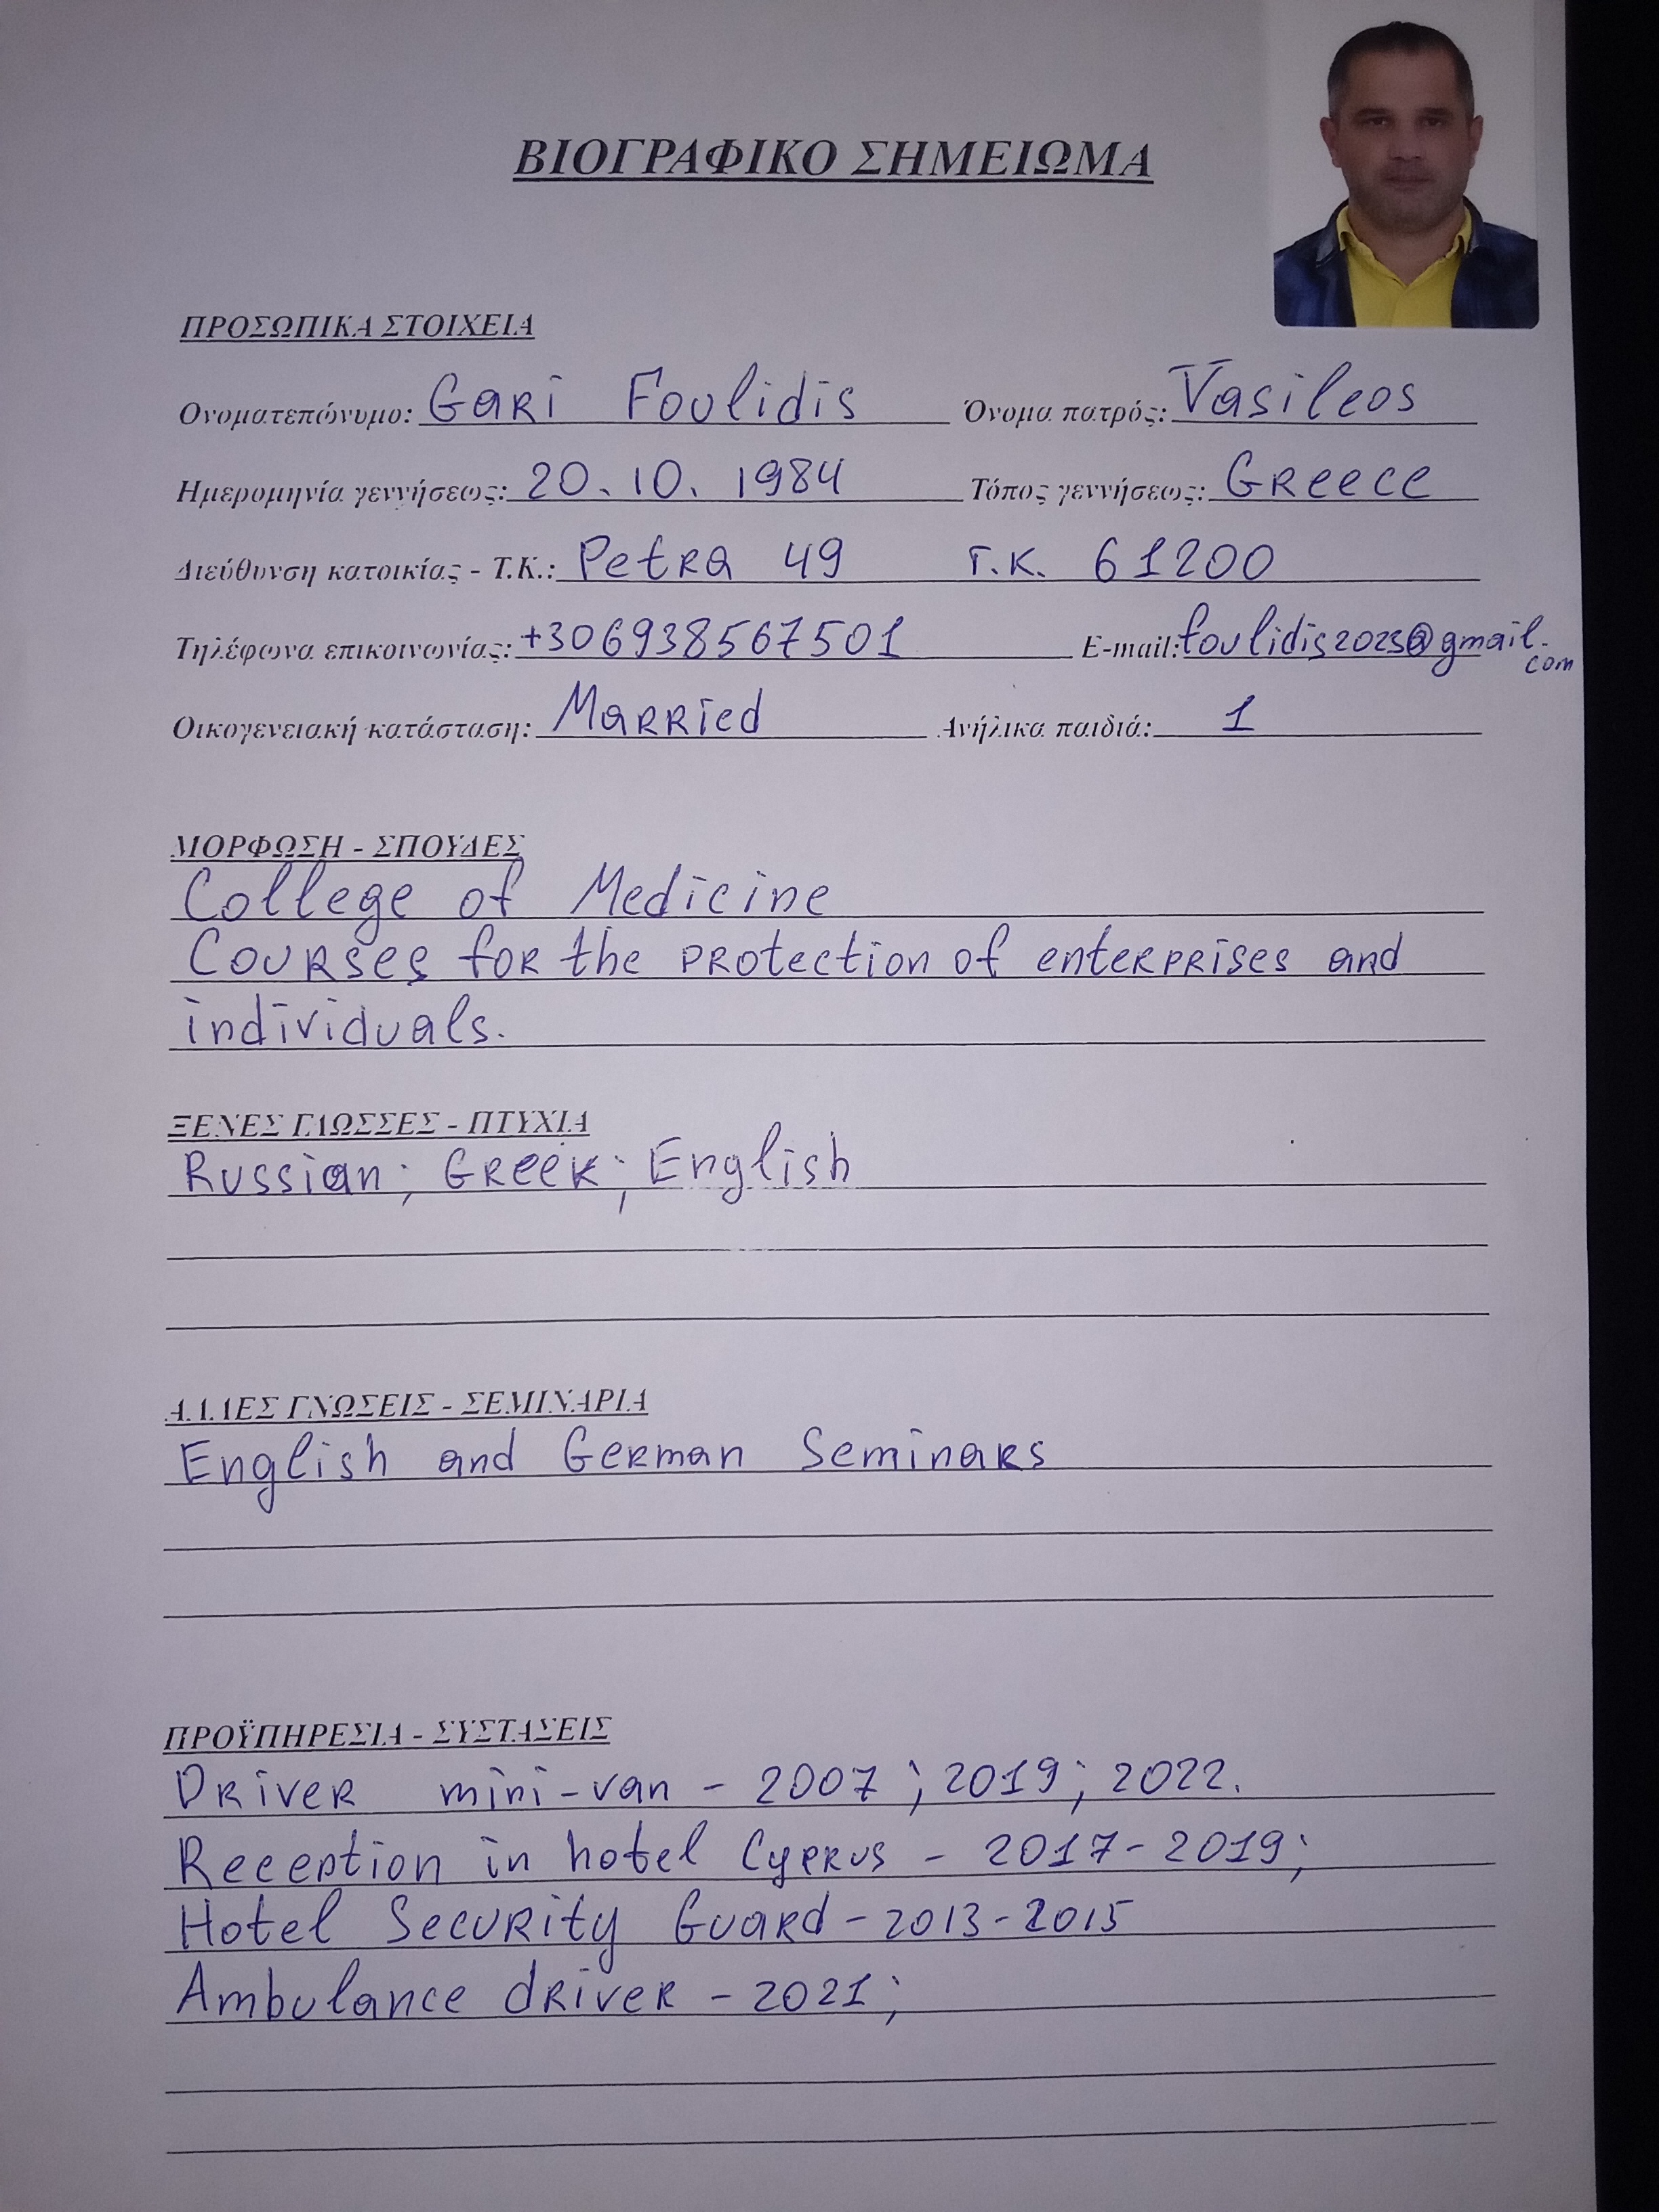 ΒΙΟΓΡΑΦΙΚΟ ΣΗΜΕΙΩΜΑ
ΠΡΟΣΩΠΙΚΑ ΣΤΟΙΧΕΙΑ
Ονοματεπώνυμο: Gari Foulidis Όνομα πατρός: Vasileos
Ημερομηνία γεννήσεως: 20.10.1984 Τόπος γεννήσεως: Greece
Διεύθυνση κατοικίας - Τ.Κ.: Petra 49 T.K. 61200
Τηλέφωνα επικοινωνίας: +306938567501 E-mail: foulidis2023@gmail.
com
Οικογενειακή κατάσταση: Married Ανήλικα παιδιά: 1
ΜΟΡΦΩΣΗ - ΣΠΟΥΔΕΣ
College of Medicine
Courses for the protection of enterprises and
individuals.
ΞΕΝΕΣ ΓΛΩΣΣΕΣ - ΠΤΥΧΙΑ
Russian; Greek; English
ΑΛΛΕΣ ΓΝΩΣΕΙΣ - ΣΕΜΙΝΑΡΙΑ
English and German Seminars
ΠΡΟΫΠΗΡΕΣΙΑ - ΣΥΣΤΑΣΕΙΣ
Driver mini-van - 2007; 2019; 2022.
Reception in hotel Cyprus - 2017-2019;
Hotel Security Guard - 2013-2015
Ambulance driver - 2021;